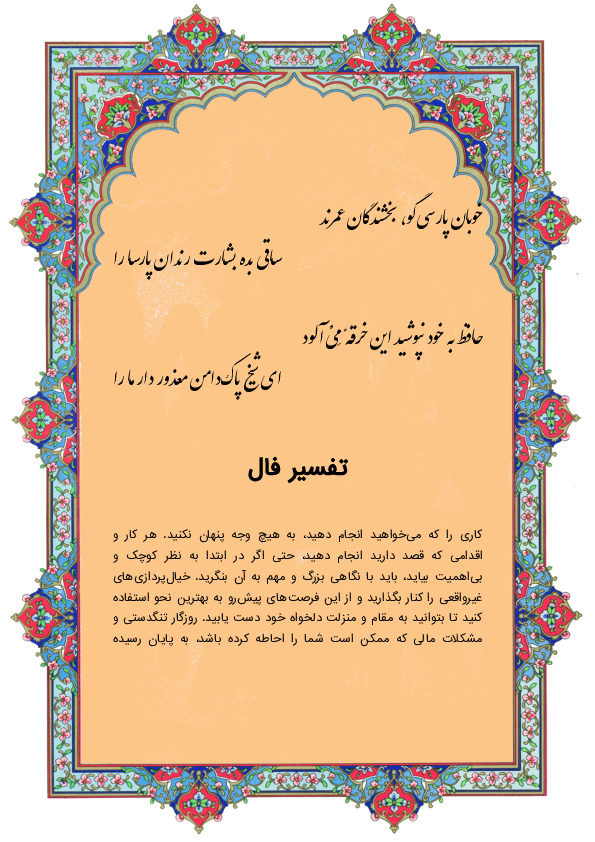 خوبان پارسی‌گو، بخشندگان عمرند
ساقی بده بشارت رندان پارسا را
حافظ به خود نپوشید این خرقهٔ مِیْ آلود
ای شیخ پاک‌دامن معذور دار ما را
تفسیر فال
کاری را که می‌خواهید انجام دهید، به هیچ وجه پنهان نکنید. هر کار و
اقدامی که قصد دارید انجام دهید، حتی اگر در ابتدا به نظر کوچک و
بی‌اهمیت بیاید، باید با نگاهی بزرگ و مهم به آن بنگرید. خیال‌پردازی‌های
غیرواقعی را کنار بگذارید و از این فرصت‌های پیش‌رو به بهترین نحو استفاده
کنید تا بتوانید به مقام و منزلت دلخواه خود دست یابید. روزگار تنگدستی و
مشکلات مالی که ممکن است شما را احاطه کرده باشد، به پایان رسیده